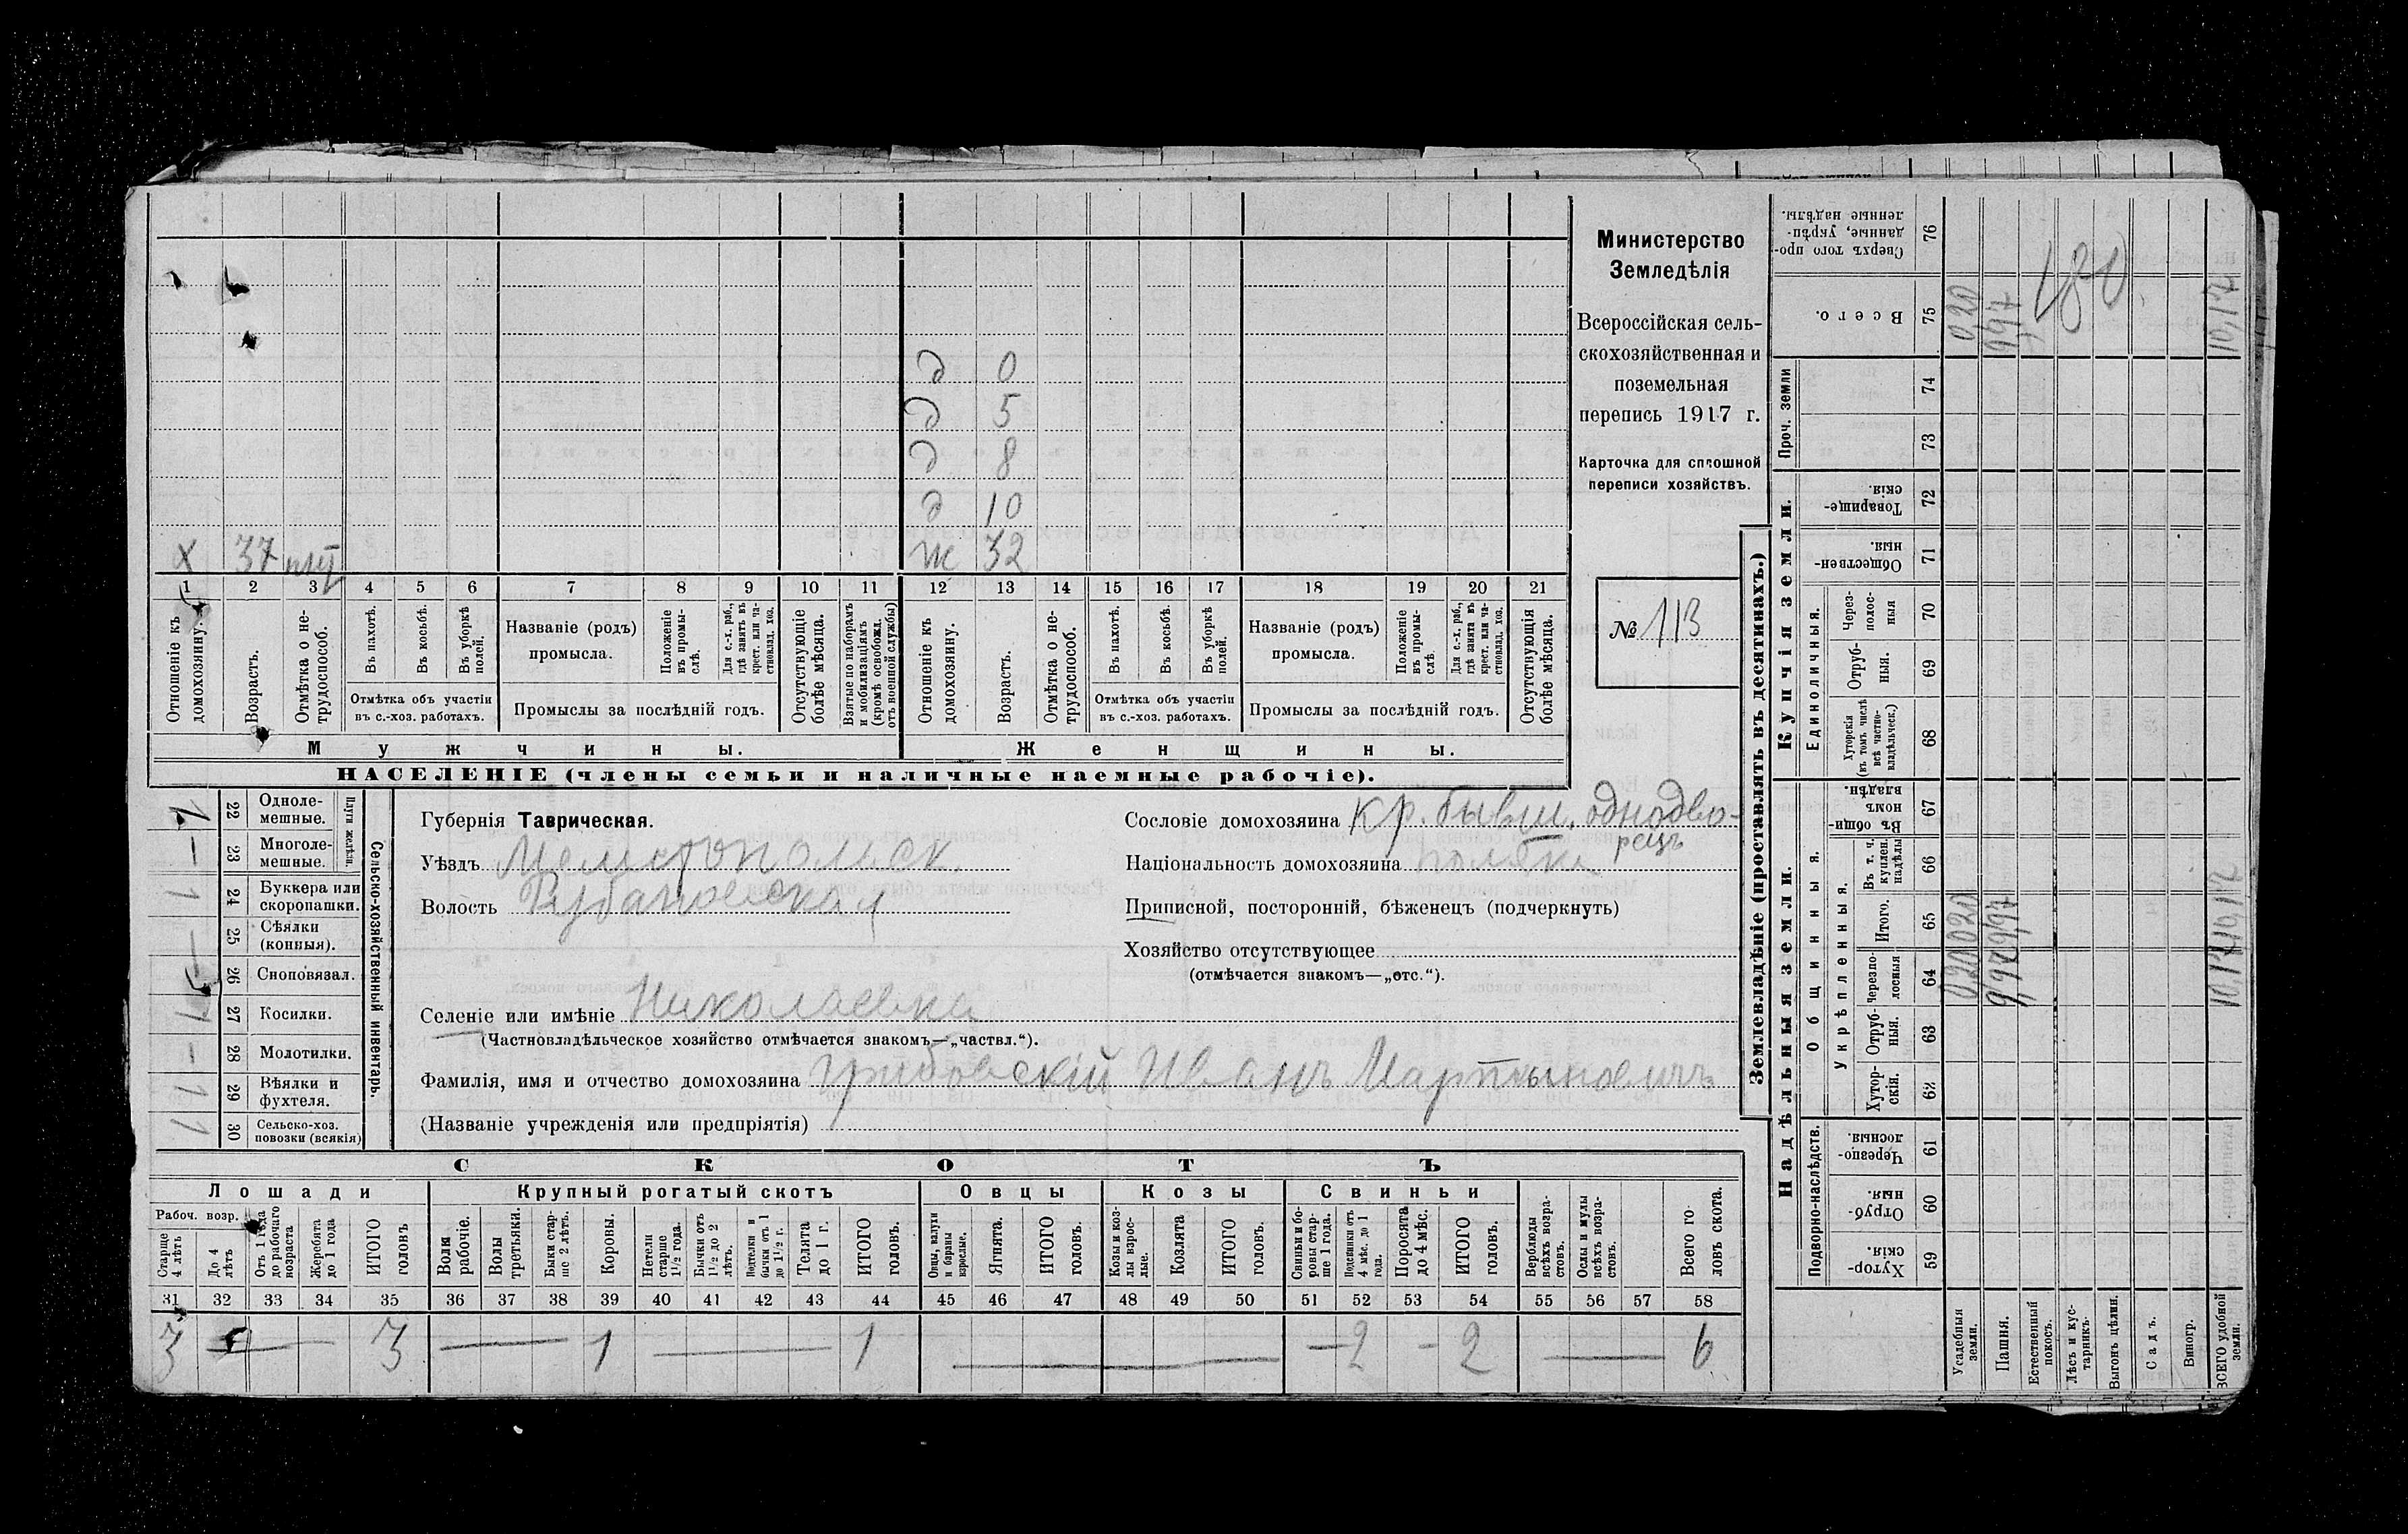 Министерство
Земледѣлія
Всероссійская сель-
скохозяйственная и
поземельная
перепись 1917 г.
Карточка для сплошной
переписи хозяйствъ.
№ 113
д 0
д 5
д 8
д 10
х 37 ж 32
1 2 3 4 5 6 7 8 9 10 11 12 13 14 15 16 17 18 19 20 21
Отношеніе къ домохозяину.
Возрастъ.
Отмѣтка о не-трудоспособ.
Въ пахотѣ.
Въ косьбѣ.
Въ уборкѣ полей.
Отмѣтка объ участіи
въ с.-хоз. работахъ.
Названіе (родъ)
промысла.
Положеніе въ промы-слѣ.
Для с.-х. раб., гдѣ занятъ въ крест. или ча-стновлад. хоз.
Промыслы за послѣдній годъ.
Отсутствующіе болѣе мѣсяца.
Взятые по наборамъ и мобилизаціямъ (кромѣ освобожд. отъ военной службы)
Отношеніе къ домохозяину.
Возрастъ.
Отмѣтка о не-трудоспособ.
Въ пахотѣ.
Въ косьбѣ.
Въ уборкѣ полей.
Отмѣтка объ участіи
въ с.-хоз. работахъ.
Названіе (родъ)
промысла.
Положеніе въ промы-слѣ.
Для с.-х. раб., гдѣ занята въ крест. или ча-стновлад. хоз.
Промыслы за послѣдній годъ.
Отсутствующія болѣе мѣсяца.
Мужчины. Женщины.
НАСЕЛЕНІЕ (члены семьи и наличные наемные рабочіе).
Сельско-хозяйственный инвентарь.
Плуги желѣзн.
22 Одноле-мешные.
23 Многоле-мешные.
24 Буккера или скоропашки.
25 Сѣялки (конныя).
26 Сноповязал.
27 Косилки.
28 Молотилки.
29 Вѣялки и фухтеля.
30 Сельско-хоз. повозки (всякія)
Губернія Таврическая.
Уѣздъ Мелитопольск.
Волость Рубановская
Селеніе или имѣніе Николаевка
(Частновладѣльческое хозяйство отмѣчается знакомъ—„частвл.“).
Фамилія, имя и отчество домохозяина Грибовскій Иванъ Мартыновичъ
(Названіе учрежденія или предпріятія)
Сословіе домохозяина кр. бывш. однодво-
рецъ
Національность домохозяина поляк
Приписной, посторонній, бѣженецъ (подчеркнуть)
Хозяйство отсутствующее
(отмѣчается знакомъ—„отс.“).
СКОТЪ
Лошади Крупный рогатый скотъ Овцы Козы Свиньи
Рабоч. возр.
Старше 4 лѣтъ
До 4 лѣтъ
Отъ 1 года до рабочаго возраста
Жеребята до 1 года
ИТОГО головъ
Волы рабочіе.
Волы третьяки.
Быки стар-ше 2 лѣтъ.
Коровы.
Нетели старше 1½ года.
Бычки отъ 1½ до 2 лѣтъ.
Подтелки и бычки отъ 1 до 1½ г.
Телята до 1 г.
ИТОГО головъ.
Овцы, валухи и бараны взрослые.
Ягнята.
ИТОГО головъ.
Козы и коз-лы взрос-лые.
Козлята
ИТОГО головъ.
Свиньи и бо-ровы стар-ше 1 года.
Подсвинки отъ 4 мѣс. до 1 года.
Поросята до 4 мѣс.
ИТОГО головъ.
Верблюды всѣхъ возра-стовъ.
Ослы и мулы всѣхъ возра-стовъ.
Всего го-ловъ скота.
31 32 33 34 35 36 37 38 39 40 41 42 43 44 45 46 47 48 49 50 51 52 53 54 55 56 57 58
3 — — 3 — 1 — 1 — — 2 - 2 — 6
Землевладѣніе (проставлять въ десятинахъ.)
Надѣльныя земли. Купчія земли.
Подворно-наслѣдств.
Общинныя.
Укрѣпленныя.
Единоличныя.
Проч. земли
59 Хутор-скія.
60 Отруб-ныя.
61 Черезпо-лосныя.
62 Хутор-скія.
63 Отруб-ныя.
64 Черезпо-лосныя
65 Итого.
66 Въ т. ч. куплен. надѣлы
67 Въ общи-номъ владѣн.
68 Хуторскія (въ томъ числѣ всѣ частно-владѣльческ.)
69 Отруб-ныя.
70 Через-полос-ныя
71 Обществен-ныя.
72 Товарище-скія.
73
74
75 Всего.
76 Сверхъ того про-данные, укрѣп-ленные надѣлы.
Усадебныя земли. 0,20 0,20 0,20
Пашня. 9,97 9,97 9,97
Естественный покосъ.
Лѣсъ и кус-тарникъ.
Выгонъ цѣлин.
Садъ.
Виногр.
ВСЕГО удобной земли. 10,17 10,17 10,17